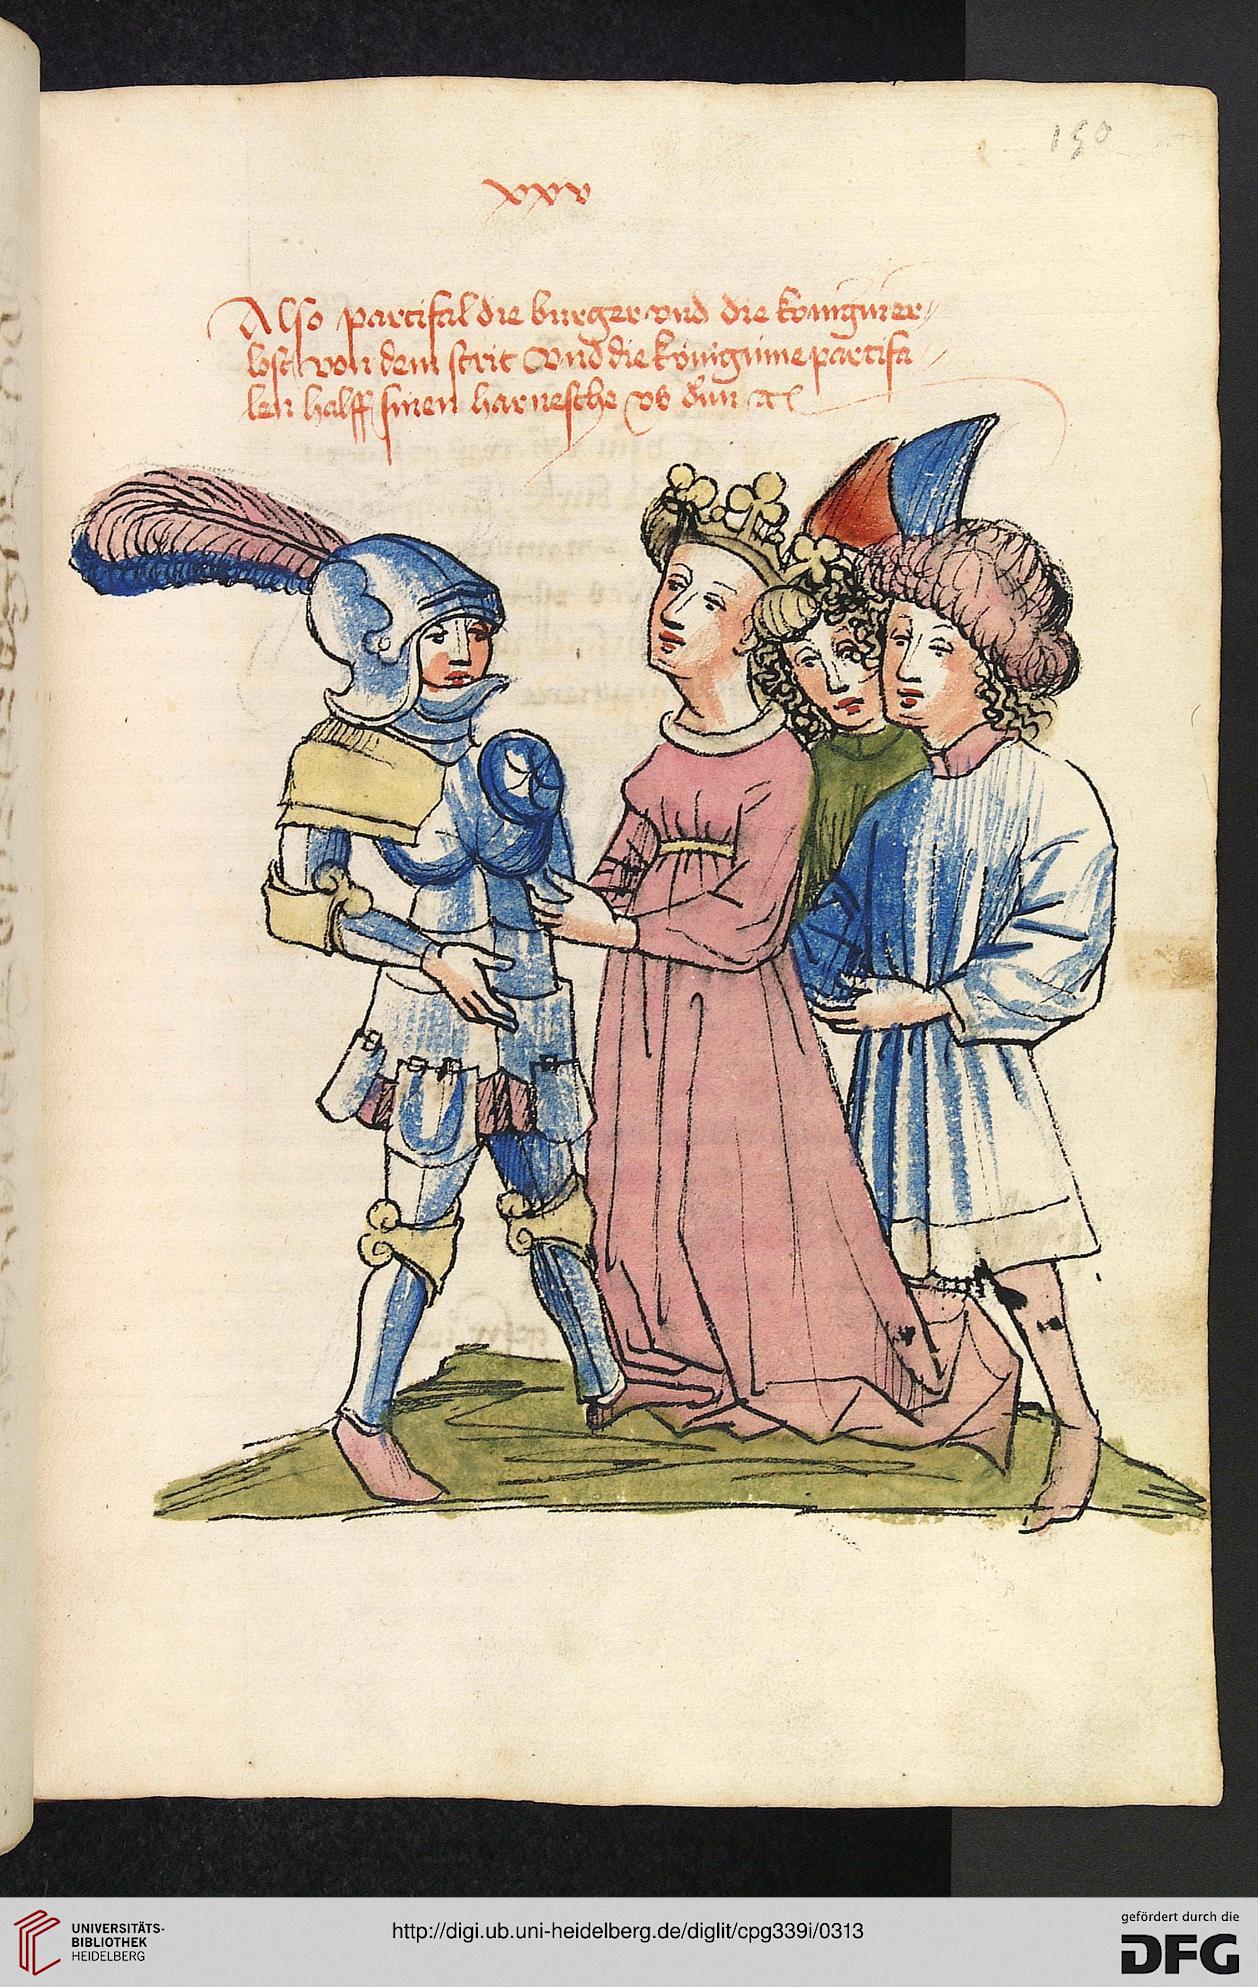 150
xxv
Also partifal die burger vnd die kónigin er
lost von dem strit Vnd die kóniginne partifa
len halff sinen harnesche vs dun
UNIVERSITÄTS-
BIBLIOTHEK
HEIDELBERG
http://digi.ub.uni-heidelberg.de/diglit/cpg339i/0313
gefördert durch die
DFG